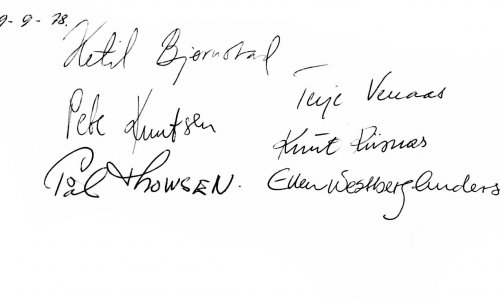 9-9-78.
Ketil Bjørnstad
Terje Venaas
Pete Knutsen
Knut Riisnæs
Pål Thowsen.
Ellen Westberg Anders